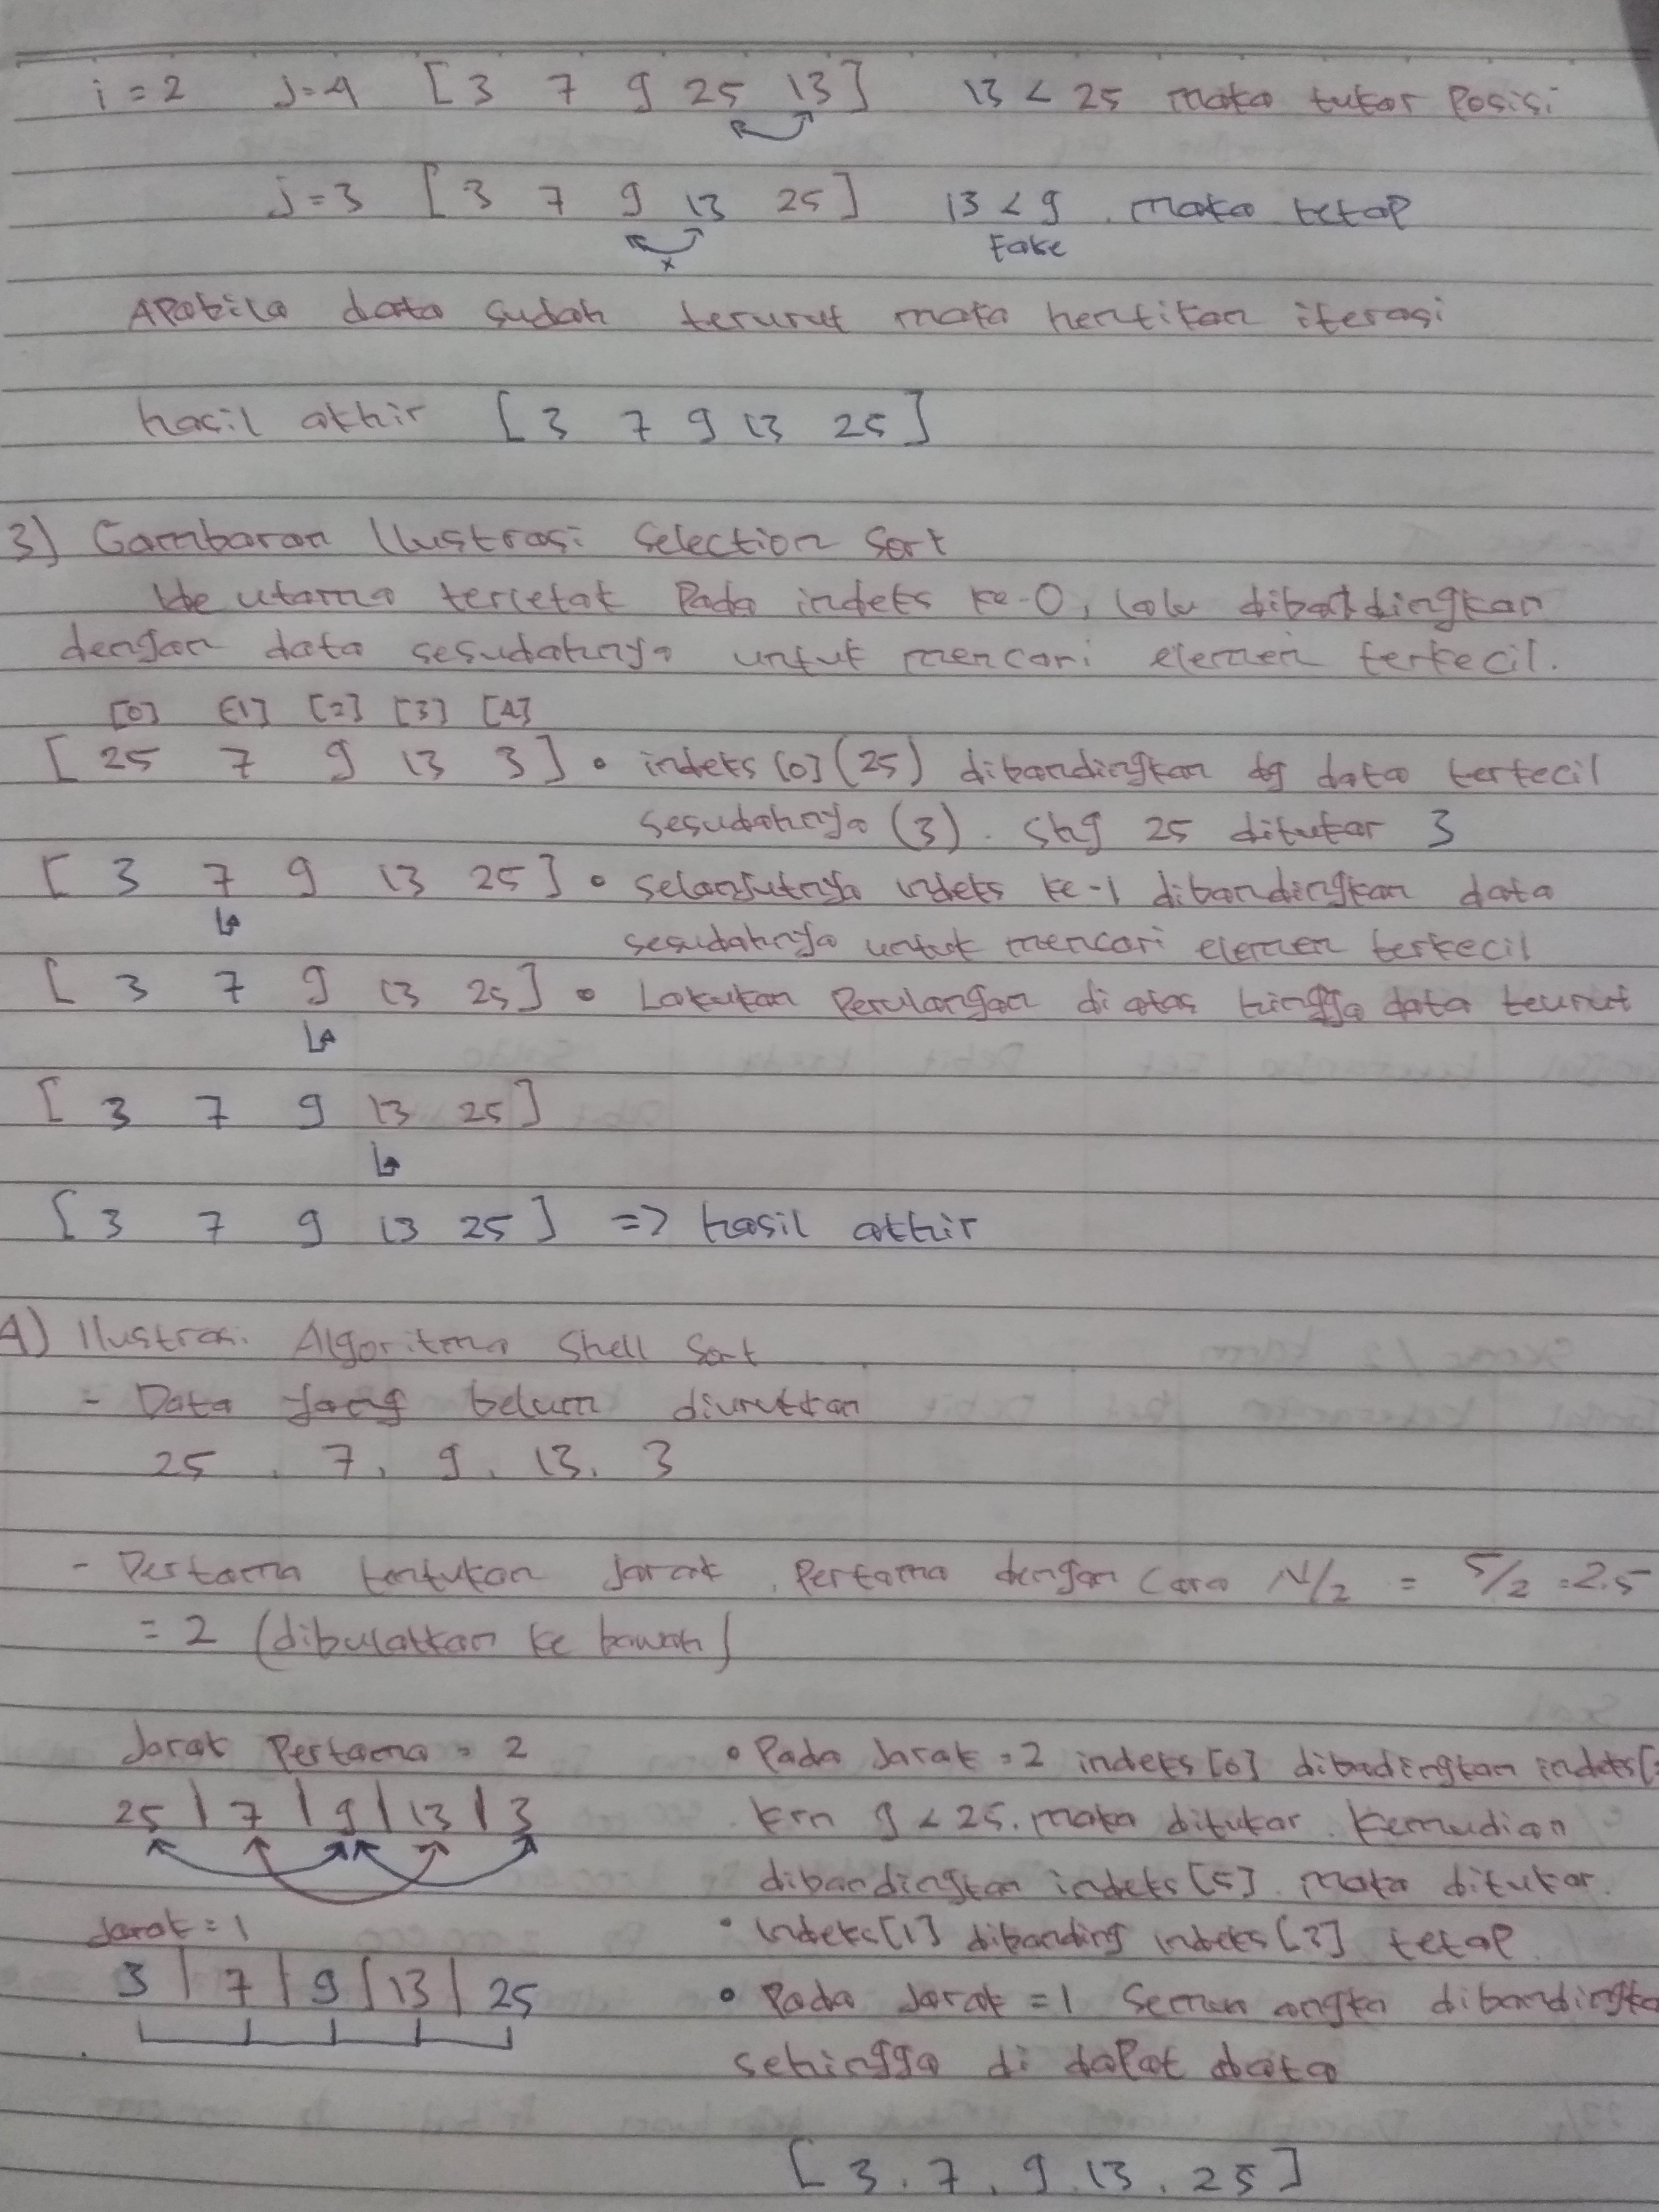 i = 2 j=4 [ 3 7 9 25 13 ] 13 < 25 maka tukar Posisi
j=3 [ 3 7 9 13 25 ] 13 < 9 . maka tetap
x False
Apabila data sudah terurut maka hentikan iterasi
hasil akhir [ 3 7 9 13 25 ]
3) Gambaran Ilustrasi Selection Sort
Ide utama terletak Pada indeks ke-0, lalu dibandingkan
dengan data sesudahnya untuk mencari elemen terkecil.
[0] [1] [2] [3] [4]
[ 25 7 9 13 3 ] • indeks [0] (25) dibandingkan dg data terkecil
sesudahnya (3). Shg 25 ditukar 3
[ 3 7 9 13 25 ] • Selanjutnya indeks ke-1 dibandingkan data
sesudahnya untuk mencari elemen terkecil
[ 3 7 9 13 25 ] • Lakukan Perulangan di atas hingga data teurut
[ 3 7 9 13 25 ]
[ 3 7 9 13 25 ] => hasil akhir
4) Ilustrasi Algoritma Shell Sort
- Data yang belum diurutkan
25 , 7, 9, 13, 3
- Pertama tentukan Jarak Pertama dengan Cara N/2 = 5/2 = 2.5
= 2 (dibulatkan ke bawah)
Jarak Pertama = 2 • Pada Jarak = 2 indeks [0] dibadingkan indeks [
25 | 7 | 9 | 13 | 3 krn 9 < 25. maka ditukar. Kemudian
dibandingkan indeks [5] maka ditukar.
Jarak = 1 • Indeks [1] dibanding indeks [3] tetap.
3 | 7 | 9 | 13 | 25 • Pada Jarak = 1 Semua angka dibandingka
sehingga di dapat data
[ 3 . 7 . 9 . 13 . 25 ]